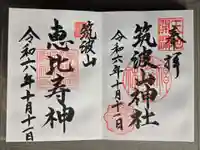 奉拝
筑波山神社
令和六年十月十一日
筑波山
恵比寿神
令和六年十月十一日